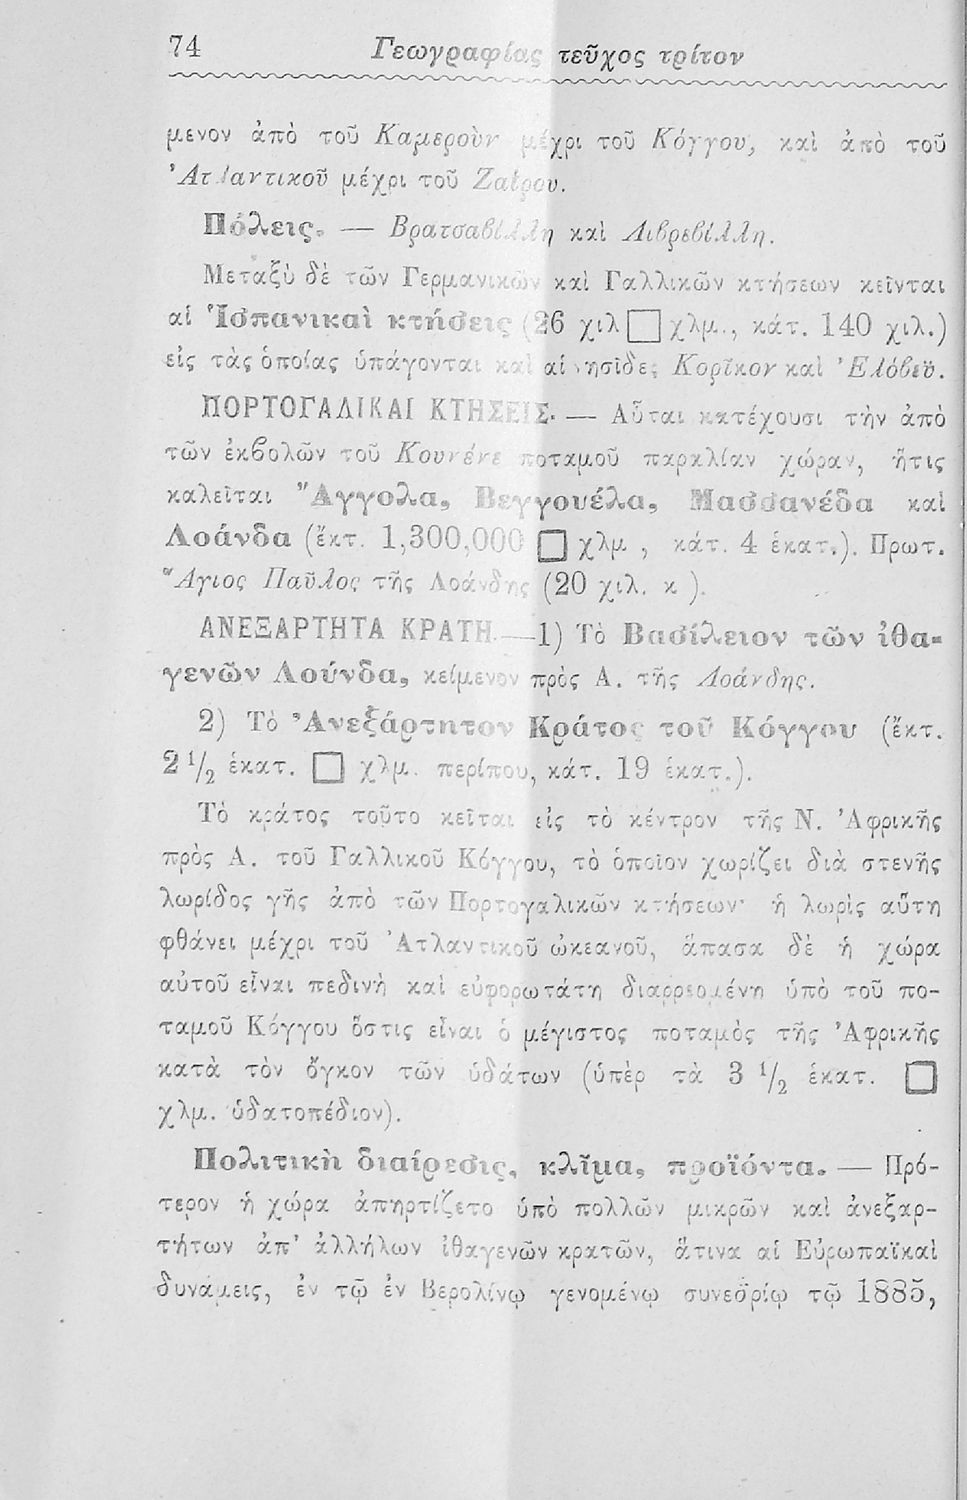 74 Γεωγραφίας τεῦχος τρίτον
μενον ἀπὸ τοῦ Καμεροὺν μέχρι τοῦ Κόγγου, καὶ ἀπὸ τοῦ
Ἀτλαντικοῦ μέχρι τοῦ Ζαΐρου.
Πόλεις. — Βρατσαβίλλη καὶ Λιβρεβίλλη.
Μεταξὺ δὲ τῶν Γερμανικῶν καὶ Γαλλικῶν κτήσεων κεῖνται
αἱ Ἱσπανικαὶ κτήσεις (26 χιλ □ χλμ., κάτ. 140 χιλ.)
εἰς τὰς ὁποίας ὑπάγονται καὶ αἱ νησῖδες Κορῖκον καὶ Ἐλόβεϋ.
ΠΟΡΤΟΓΑΛΙΚΑΙ ΚΤΗΣΕΙΣ. — Αὗται κατέχουσι τὴν ἀπὸ
τῶν ἐκβολῶν τοῦ Κουνένε ποταμοῦ παραλίαν χώραν, ἥτις
καλεῖται Ἄγγολα, Βεγγουέλα, Μασσανέδα καὶ
Λοάνδα (ἔκτ. 1,300,000 □ χλμ, κάτ. 4 ἑκατ.). Πρωτ.
Ἅγιος Παῦλος τῆς Λοάνδης (20 χιλ. κ).
ΑΝΕΞΑΡΤΗΤΑ ΚΡΑΤΗ.—1) Τὸ Βασίλειον τῶν ἰθα-
γενῶν Λούνδα, κείμενον πρὸς Α. τῆς Λοάνδης.
2) Τὸ Ἀνεξάρτητον Κράτος τοῦ Κόγγου (ἔκτ.
2 1/2 ἑκατ. □ χλμ. περίπου, κάτ. 19 ἑκατ.).
Τὸ κράτος τοῦτο κεῖται εἰς τὸ κέντρον τῆς Ν. Ἀφρικῆς
πρὸς Α. τοῦ Γαλλικοῦ Κόγγου, τὸ ὁποῖον χωρίζει διὰ στενῆς
λωρίδος γῆς ἀπὸ τῶν Πορτογαλικῶν κτήσεων· ἡ λωρὶς αὕτη
φθάνει μέχρι τοῦ Ἀτλαντικοῦ ὠκεανοῦ, ἅπασα δὲ ἡ χώρα
αὐτοῦ εἶναι πεδινὴ καὶ εὐφορωτάτη διαρρεομένη ὑπὸ τοῦ πο-
ταμοῦ Κόγγου ὅστις εἶναι ὁ μέγιστος ποταμὸς τῆς Ἀφρικῆς
κατὰ τὸν ὄγκον τῶν ὑδάτων (ὑπὲρ τὰ 3 1/2 ἑκατ. □
χλμ. ὑδατοπέδιον).
Πολιτικὴ διαίρεσις, κλῖμα, προϊόντα. — Πρό-
τερον ἡ χώρα ἀπηρτίζετο ὑπὸ πολλῶν μικρῶν καὶ ἀνεξαρ-
τήτων ἀπ' ἀλλήλων ἰθαγενῶν κρατῶν, ἅτινα αἱ Εὐρωπαϊκαὶ
δυνάμεις, ἐν τῷ ἐν Βερολίνῳ γενομένῳ συνεδρίῳ τῷ 1885,